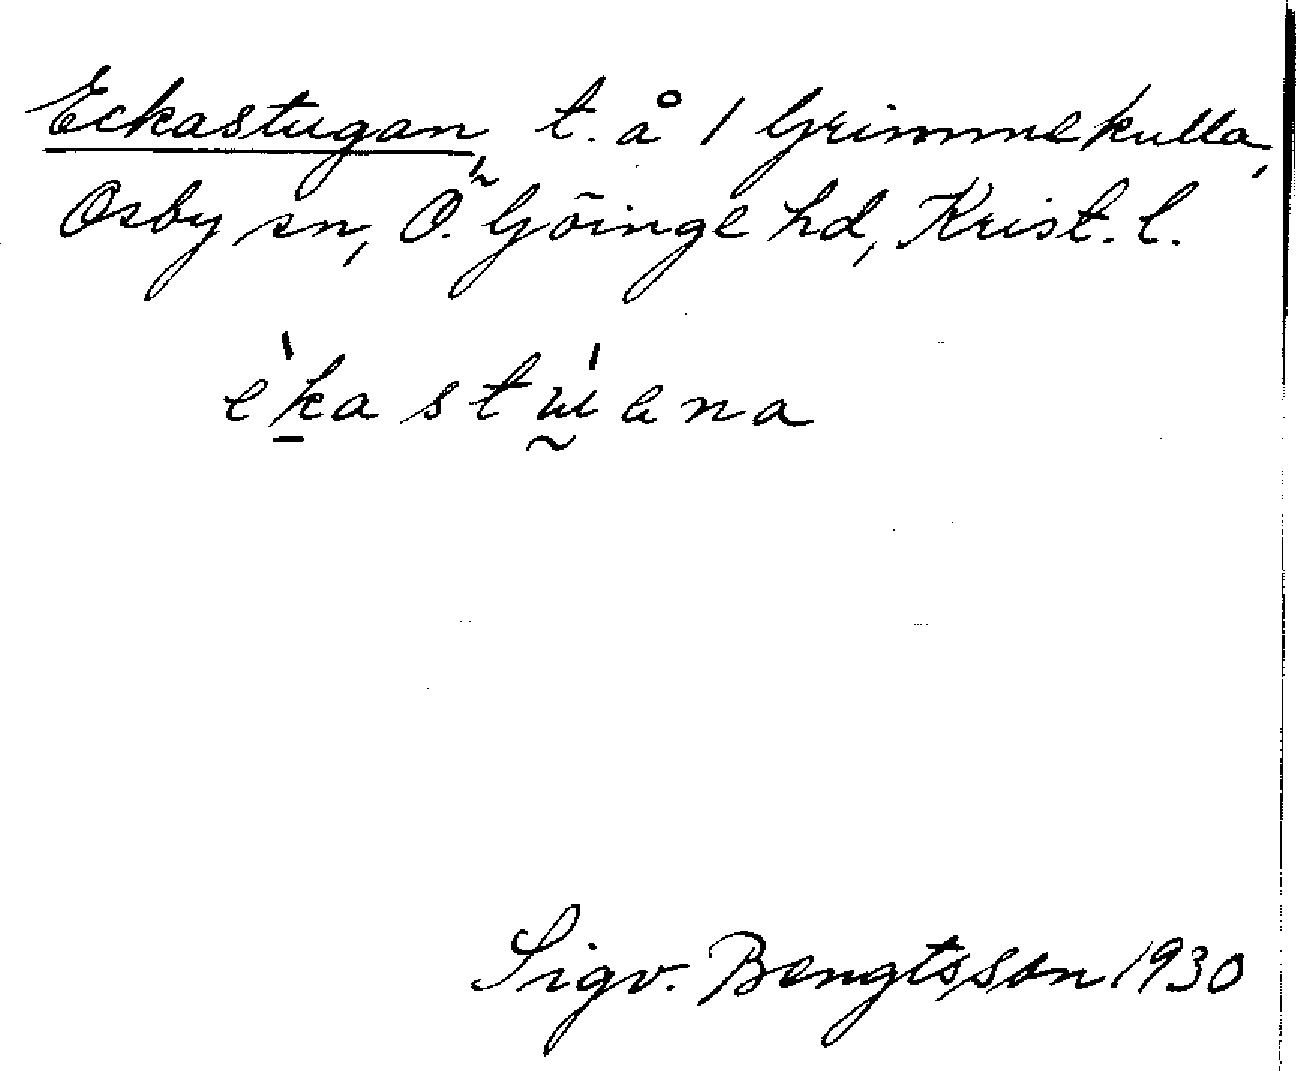 Eckastugan, t. å 1 Grimmekulla,
Osby sn, Ö. Göinge hd, Krist. l.
Sigv. Bengtsson 1930